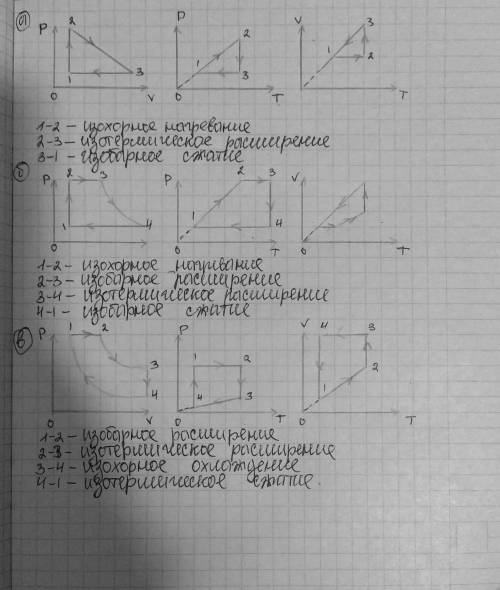 а)
P 2 1 3 0 V
P 2 1 3 0 T
V 3 1 2 0 T
1-2 - изохорное нагревание
2-3 - изотермическое расширение
3-1 - изобарное сжатие
б)
P 2 3 1 4 0 V
P 2 3 1 4 0 T
V 0 T
1-2 - изохорное нагривание
2-3 - изобарное расширение
3-4 - изотермическое расширение
4-1 - изобарное сжатие
в)
P 1 2 3 4 0 V
P 1 2 4 3 0 T
V 4 3 2 1 0 T
1-2 - изобарное расширение
2-3 - изотермическое расширение
3-4 - изохорное охлаждение
4-1 - изотермическое сжатие.